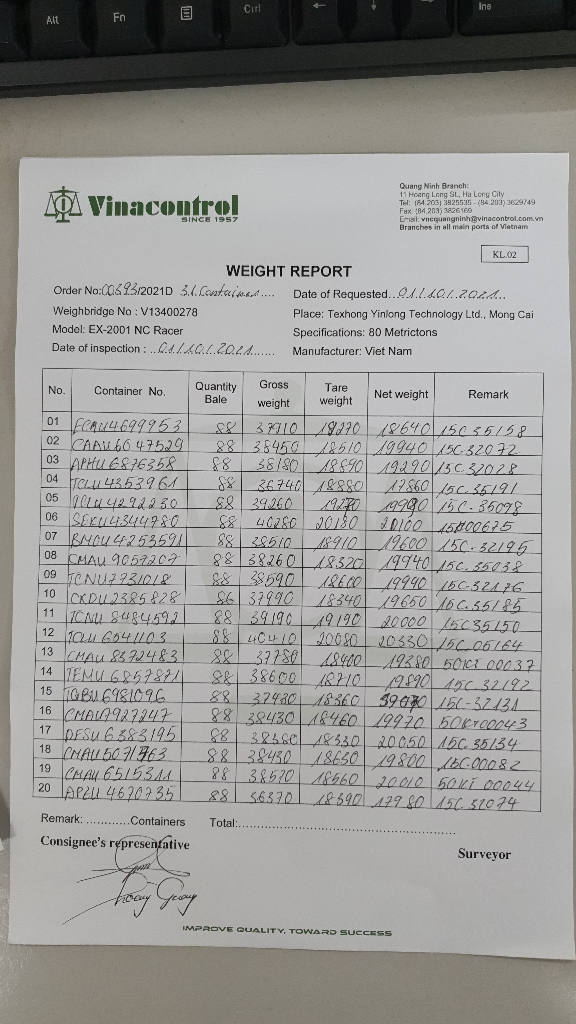 Alt Fn Ctrl ← ↓ → Ins
Vinacontrol
SINCE 1957
Quang Ninh Branch:
11 Hoang Long St., Ha Long City
Tel: (84.203) 3825535 - (84.203) 3629749
Fax: (84.203) 3826169
Email: vncquangninh@vinacontrol.com.vn
Branches in all main ports of Vietnam
KL.02
WEIGHT REPORT
Order No: 00393/2021D 31 Containers.... Date of Requested...01/10/2021...
Weighbridge No : V13400278 Place: Texhong Yinlong Technology Ltd., Mong Cai
Model: EX-2001 NC Racer Specifications: 80 Metrictons
Date of inspection : ...01/10/2021...... Manufacturer: Viet Nam
No. Container No. Quantity Bale Gross weight Tare weight Net weight Remark
01 FCAU4699953 88 37910 19270 18640 15C 35158
02 CAAU6647529 88 38450 18510 19940 15C-32072
03 APHU6876358 88 38180 18890 19290 15C 32028
04 TCLU4353961 88 36740 18880 17860 15C.35191
05 TCLU4292230 88 39260 15C-35078
06 SEKU4344780 88 40280 20180 20100
07 BMOU4253591 88 38510 18910 19600 15C-32195
08 CMAU9057207 88 38260 18320 19940 15C.35038
09 TCNU7731018 88 38590 18600 19990 15C-32176
10 CKDU2385828 86 37990 18340 19650 15C.35185
11 TCNU8484592 88 39190 19190 20000 15C35150
12 TCLU6541103 88 40410 20080 20330 15C 05164
13 CMAU8372483 88 37780 18400 19380 50KT 00037
14 TEMU6857871 88 38600 18710 19890 15C.32192
15 TGBU6981096 88 37430 18360 15C-32131
16 CMAU7927247 88 38430 18460 19970 50KT00043
17 DFSU6383195 88 38380 18330 20050 15C 35134
18 CMAU5071763 88 38430 18630 19800 15C-00082
19 CMAU6515311 88 38570 18560 20010 50KT 00044
20 APZU4670735 88 36370 18390 17980 15C 32074
Remark: ............Containers Total:......................................................
Consignee's representative Surveyor
IMPROVE QUALITY, TOWARD SUCCESS